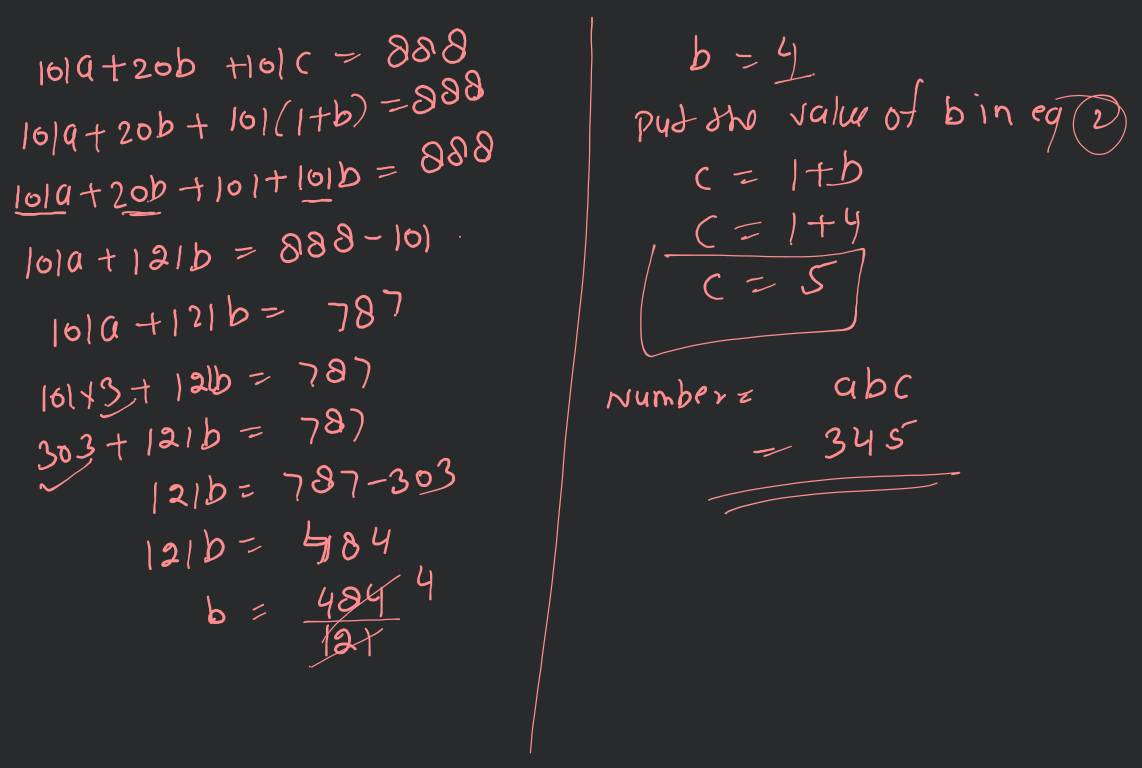 101a + 20b + 101c = 888
101a + 20b + 101(1+b) = 888
101a + 20b + 101 + 101b = 888
101a + 121b = 888 - 101
101a + 121b = 787
101×3 + 121b = 787
303 + 121b = 787
121b = 787 - 303
121b = 484
b = 484/121 4
b = 4
put the value of b in eq 2
c = 1+b
c = 1+4
c = 5
Number = abc
= 345